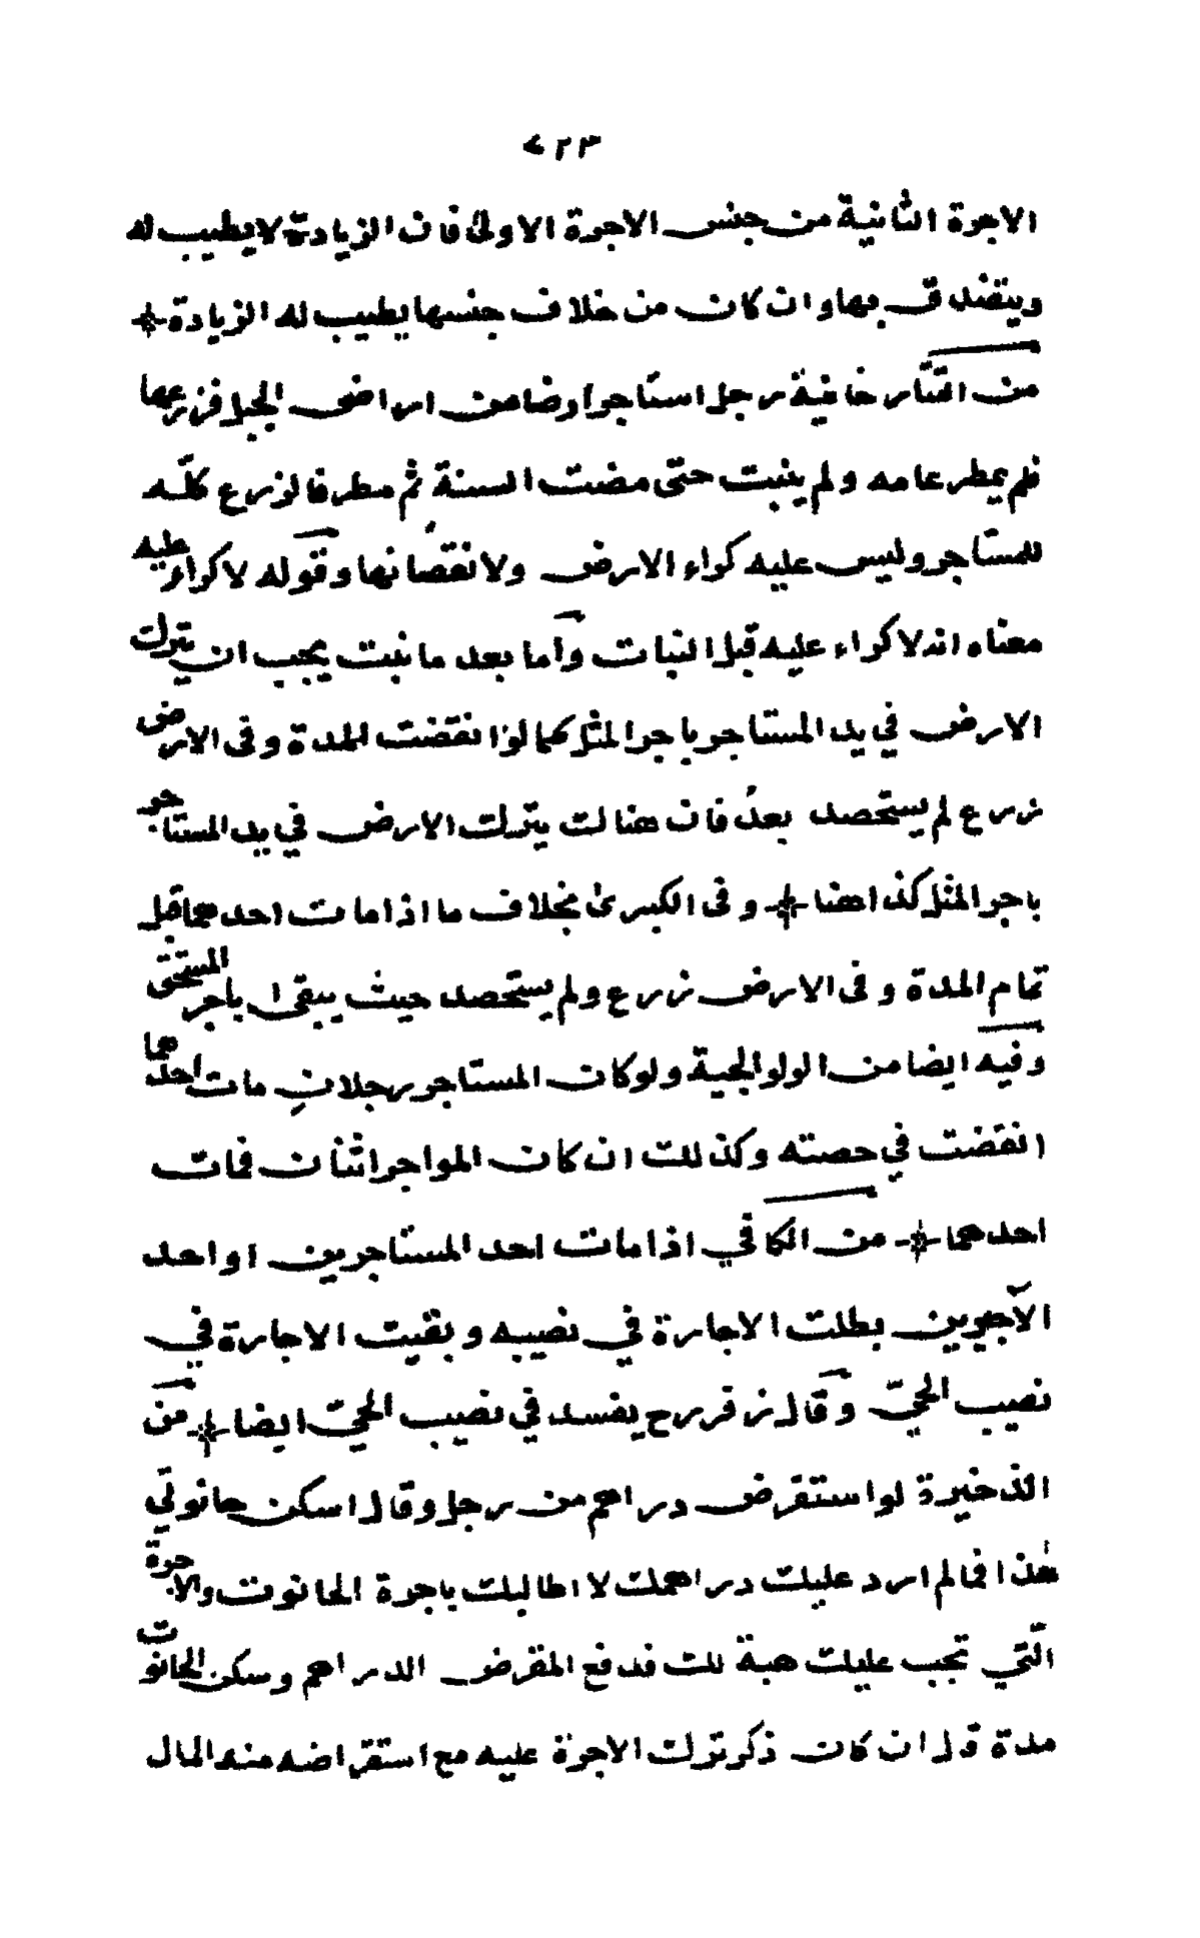 ٧٢٣
الاجرة الثانية من جنس الاجرة الاولى فان الزيادة لا يطيب له
ويتصدق بها وان كان من خلاف جنسها يطيب له الزيادة
من التتار خانية رجل استاجر ارضا من اراضى الجبل فزرعها
فلم يمطر عامه ولم ينبت حتى مضت السنة ثم مطر فالزرع كله
للمستاجر وليس عليه كراء الارض ولا نقصانها وقوله لا كراء عليه
معناه انه لا كراء عليه قبل النبات وأما بعد ما نبت يجب ان يترك
الارض في يد المستاجر باجر المثل كما لو انقضت المدة وفى الارض
زرع لم يستحصد بعدُ فان هنالك يترك الارض في يد المستاجر
باجر المثل كذا هنا وفى الكبرى بخلاف ما اذا مات احدهما قبل
تمام المدة وفى الارض زرع ولم يستحصد حيث يبقى ا باجر المستحق
وفيه ايضا من الولوالجية ولو كان المستاجر رجلانِ مات احدهما
انقضت في حصته وكذلك ان كان المواجر اثنان فمات
احدهما من الكافي اذا مات احد المستاجرين او احد
الآجرين بطلت الاجارة في نصيبه وبقيت الاجارة في
نصيب الحيّ وقال زفر رح يفسد في نصيب الحيّ ايضا من
الذخيرة لو استقرض دراهم من رجل وقال اسكن حانوتي
هذا فما لم ارد عليك دراهمك لا اطالبك باجرة الحانوت والاجرة
الّتي تجب عليك هبة لك فدفع المقرض الدراهم وسكن الحانوت
مدة قال ان كان ذكر ترك الاجرة عليه مع استقراضه منه المال